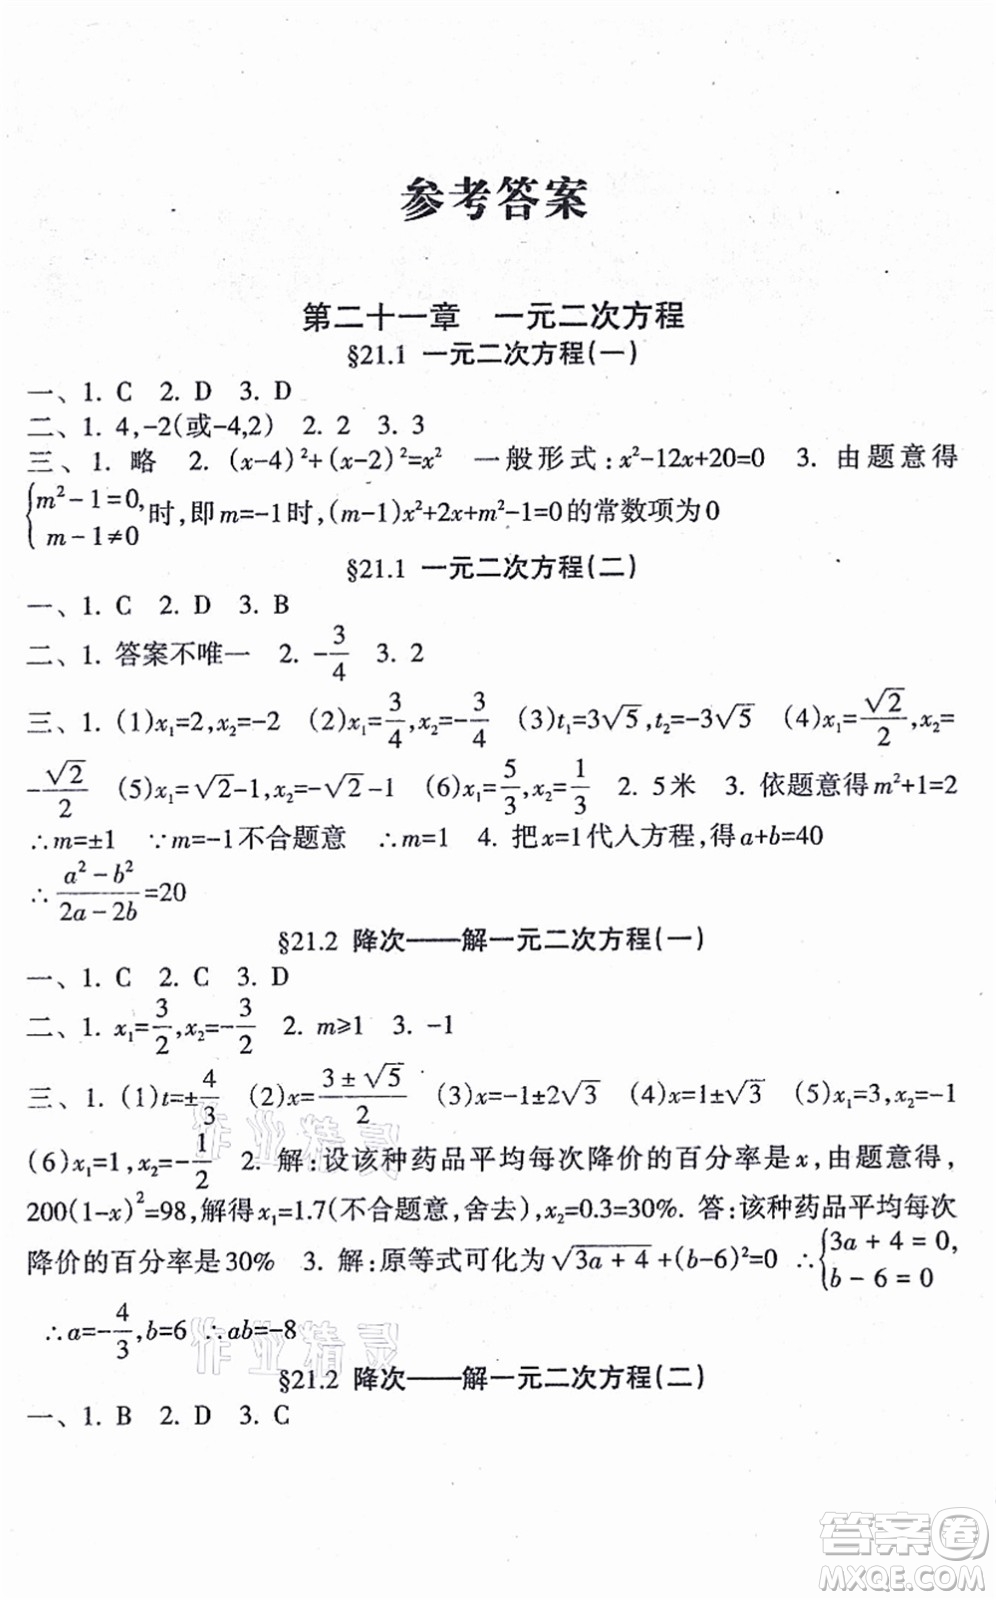 参考答案
第二十一章　一元二次方程
§21.1 一元二次方程(一)
一、1. C 2. D 3. D
二、1. 4,-2(或-4,2) 2. 2 3. 3
三、1. 略 2. (x-4)²+(x-2)²=x² 一般形式:x²-12x+20=0 3. 由题意得
{m²-1=0, m-1≠0 时,即m=-1时,(m-1)x²+2x+m²-1=0的常数项为0
§21.1 一元二次方程(二)
一、1. C 2. D 3. B
二、1. 答案不唯一 2. -3/4 3. 2
三、1. (1)x₁=2,x₂=-2 (2)x₁=3/4,x₂=-3/4 (3)t₁=3√5,t₂=-3√5 (4)x₁=√2/2,x₂=
-√2/2 (5)x₁=√2-1,x₂=-√2-1 (6)x₁=5/3,x₂=1/3 2. 5米 3. 依题意得m²+1=2
∴m=±1 ∵m=-1不合题意 ∴m=1 4. 把x=1代入方程,得a+b=40
∴(a²-b²)/(2a-2b)=20
§21.2 降次——解一元二次方程(一)
一、1. C 2. C 3. D
二、1. x₁=3/2,x₂=-3/2 2. m≥1 3. -1
三、1. (1)t=±4/3 (2)x=(3±√5)/2 (3)x=-1±2√3 (4)x=1±√3 (5)x₁=3,x₂=-1
(6)x₁=1,x₂=-1/2 2. 解:设该种药品平均每次降价的百分率是x,由题意得,
200(1-x)²=98,解得x₁=1.7(不合题意,舍去),x₂=0.3=30%. 答:该种药品平均每次
降价的百分率是30% 3. 解:原等式可化为√(3a+4)+(b-6)²=0 ∴{3a+4=0, b-6=0
∴a=-4/3,b=6 ∴ab=-8
§21.2 降次——解一元二次方程(二)
一、1. B 2. D 3. C
作业精灵
作业精灵
答案卷
MXQE.COM